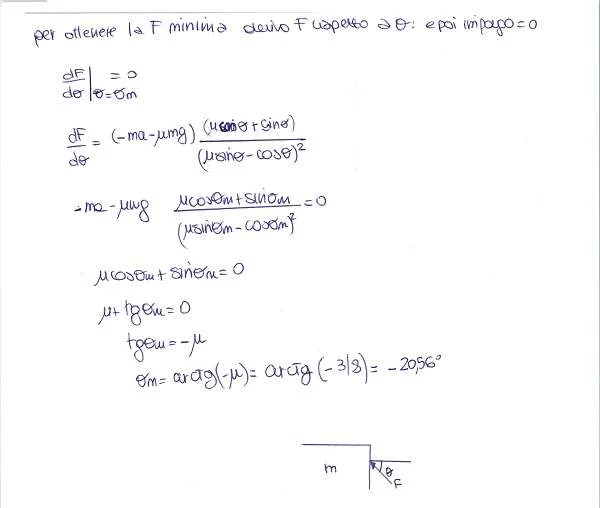 per ottenere la F minima derivo F rispetto a θ: e poi impongo = 0
dF/dθ |θ=θm = 0
dF/dθ = (-ma-μmg) (μcosθ+sinθ)/(μsinθ-cosθ)²
-ma-μmg μcosθm+sinθm/(μsinθm-cosθm)² = 0
μcosθm+sinθm = 0
μ+tgθm = 0
tgθm = -μ
θm = arctg(-μ) = arctg(-3/8) = -20,56°
m
θ
F